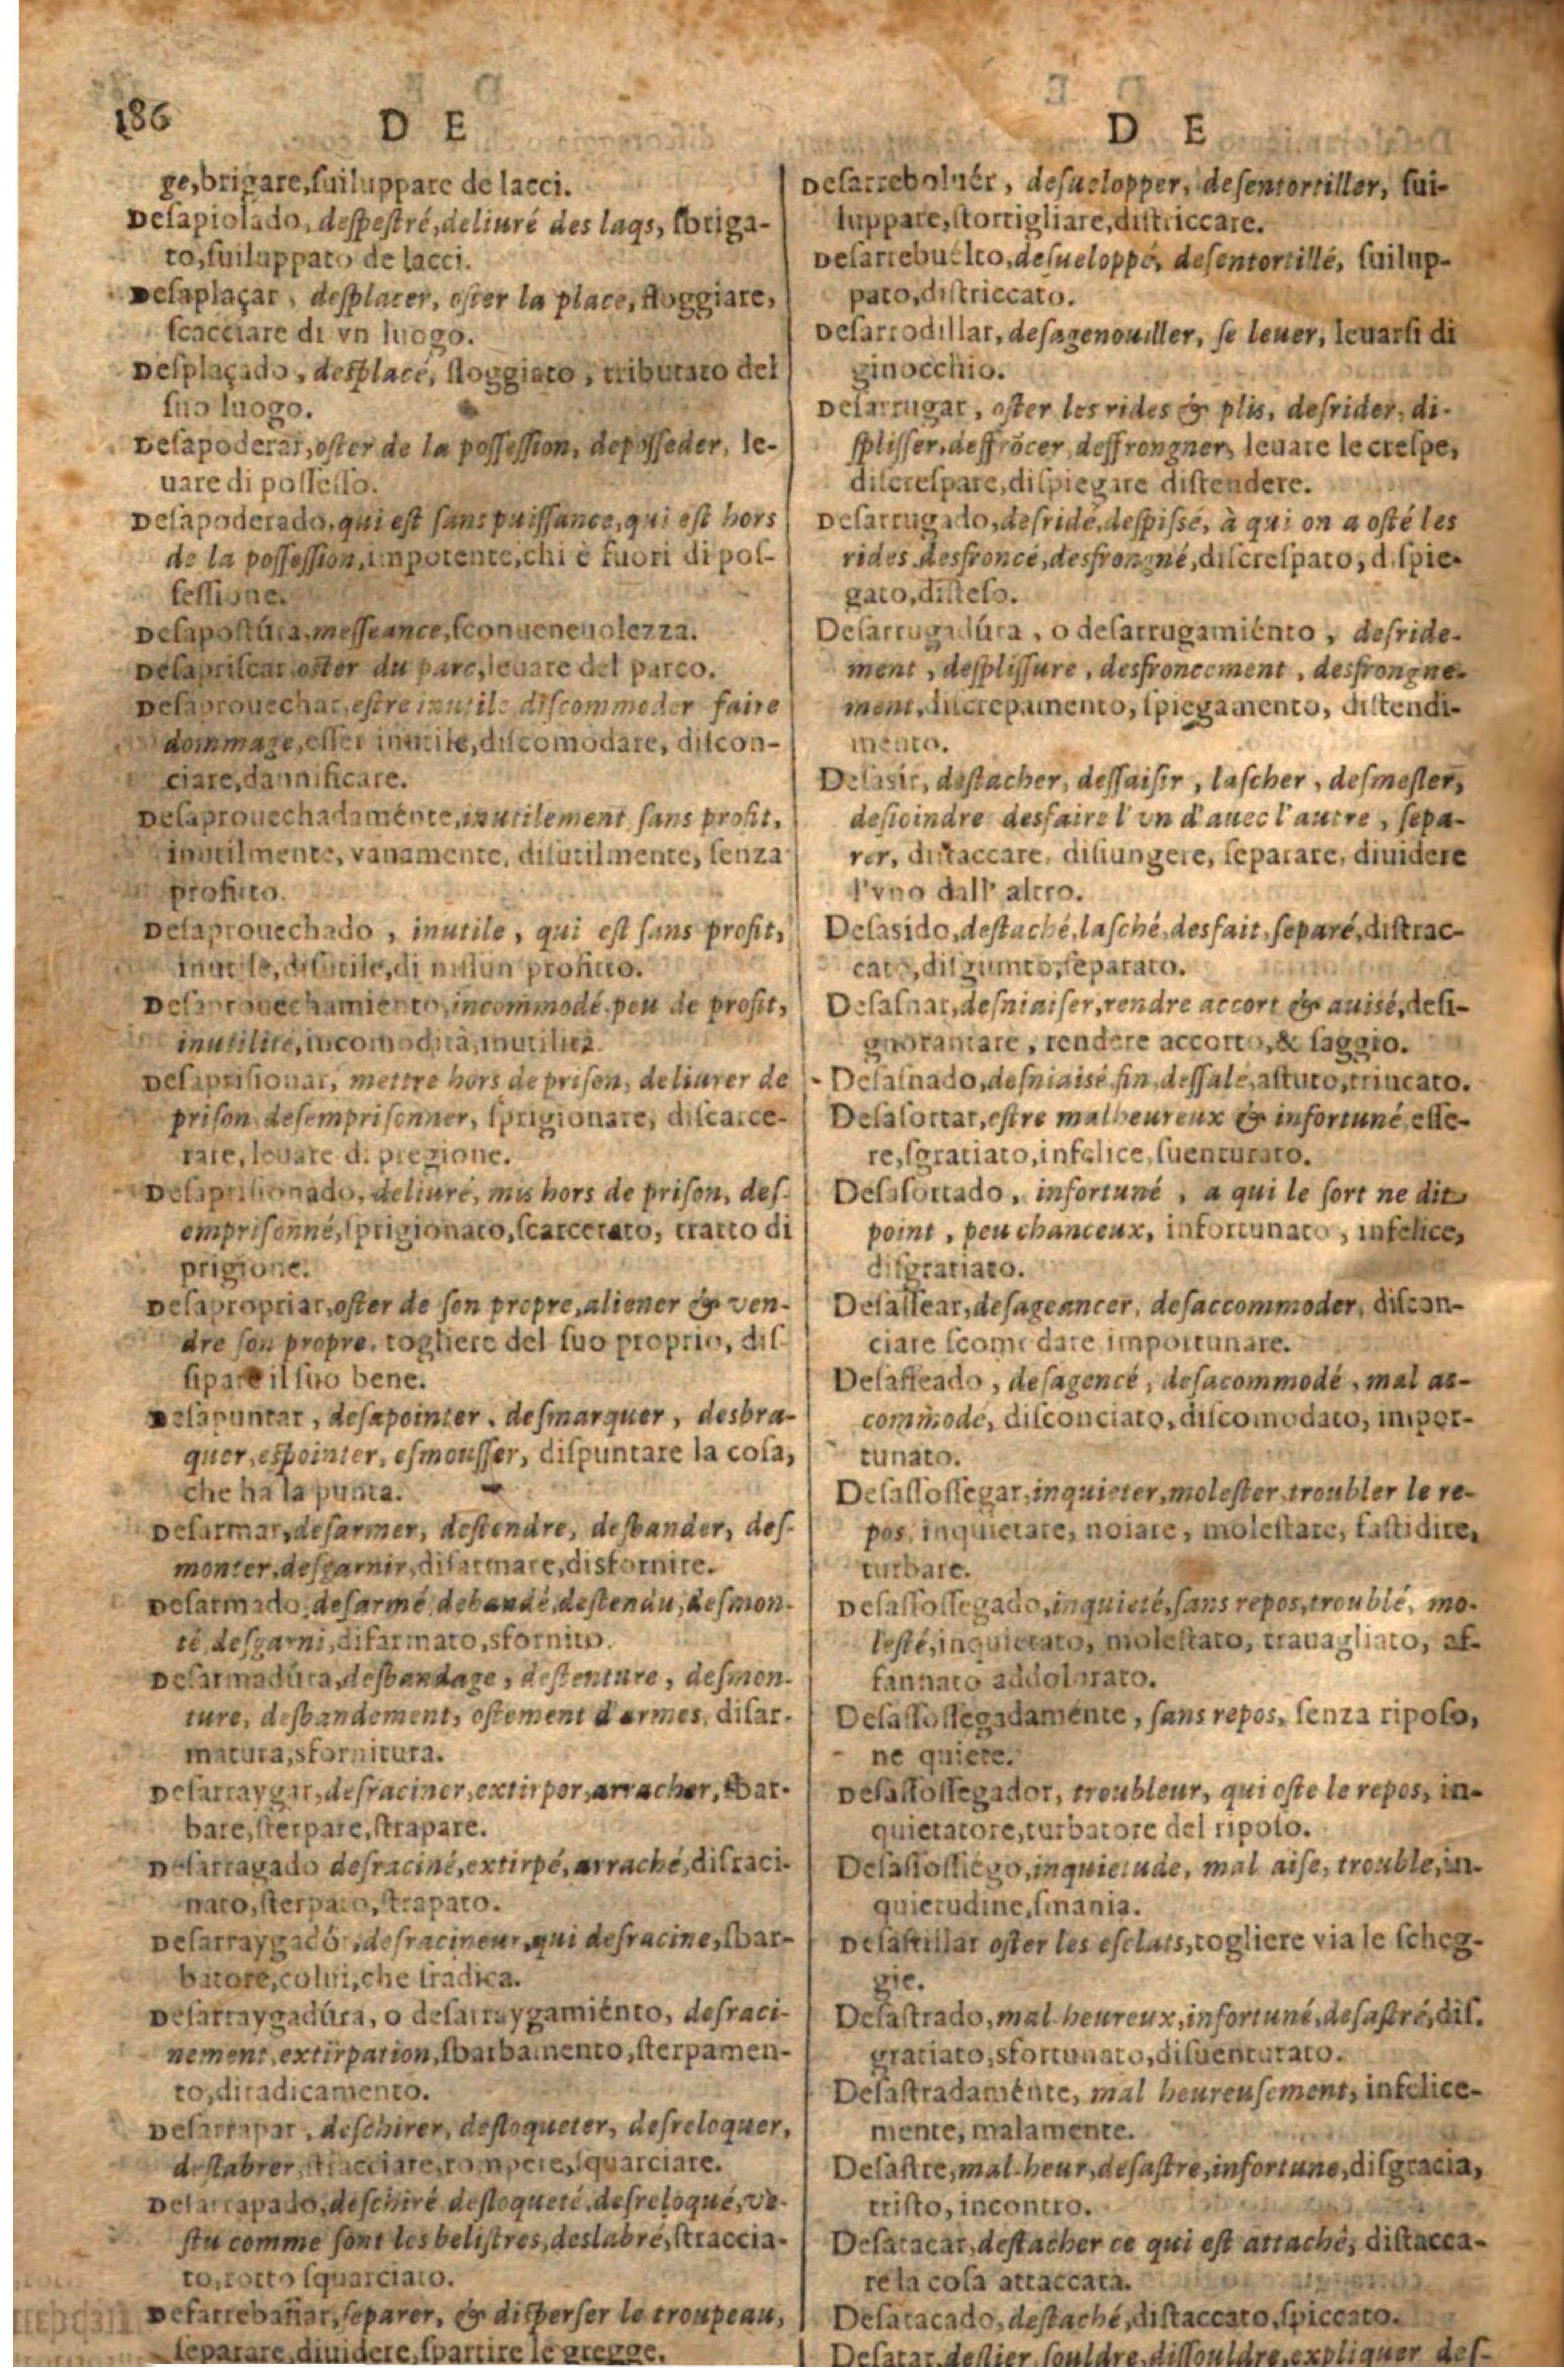 186
D E
ge,brigare,ſuiluppare de lacci.
Deſapiolado, deſpeſtré,deliuré des laqs, ſbriga-
to,ſuiluppato de lacci.
Deſaplaçar, deſplacer, oſter la place, ſloggiare,
ſcacciare di vn luogo.
Deſplaçado, deſplacé, ſloggiato, tributato del
ſuo luogo.
Deſapoderar,oſter de la poſſeſſion, depoſſeder, le-
uare di poſſeſſo.
Deſapoderado,qui eſt ſans puiſſance,qui eſt hors
de la poſſeſſion,impotente,chi è fuori di poſ-
ſeſſione.
Deſapoſtúra,meſſeance,ſconueneuolezza.
Deſapriſcar,oſter du parc,leuare del parco.
Deſaprouechar,eſtre inutile diſcommoder faire
dommage,eſſer inutile,diſcomodare, diſcon-
ciare,dannificare.
Deſaprouechadaménte,inutilement ſans profit,
inutilmente, vanamente, diſutilmente, ſenza
profitto.
Deſaprouechado, inutile, qui eſt ſans profit,
inutile,diſutile,di niſſun profitto.
Deſaprouechamiento,incommodé,peu de profit,
inutilité,incomodità,inutilità.
Deſapriſionar, mettre hors de priſon, deliurer de
priſon deſempriſonner, ſprigionare, diſcarce-
rare,leuare di pregione.
Deſapriſionado,deliuré, mis hors de priſon, deſ-
empriſonné,ſprigionato,ſcarcerato, tratto di
prigione.
Deſapropriar,oſter de ſon propre,aliener & ven-
dre ſon propre, togliere del ſuo proprio, diſ-
ſipare il ſuo bene.
Deſapuntar, deſapointer, deſmarquer, desbra-
quer,eſpointer, eſmouſſer, diſpuntare la coſa,
che ha la punta.
Deſarmar,deſarmer, deſtendre, desbander, deſ-
monter,deſgarnir,diſarmare,disfornire.
Deſarmado,deſarmé,debandé,deſtendu,deſmon-
té,deſgarni,diſarmato,sfornito.
Deſarmadúra,desbandage, deſtenture, deſmon-
ture, desbandement, oſtement d'armes, diſar-
matura,sfornitura.
Deſarraygar,deſraciner,extirper,arracher,ſbar-
bare,ſterpare,ſtrapare.
Deſarragado deſraciné,extirpé,arraché,diſraci-
nato,ſterpato,ſtrapato.
Deſarraygadór,deſracineur,qui deſracine,ſbar-
batore,colui,che ſradica.
Deſarraygadúra, o deſarraygamiénto, deſraci-
nement,extirpation,ſbarbamento,ſterpamen-
to,diradicamento.
Deſarrapar, deſchirer, deſloqueter, deſreloquer,
deſlabrer,ſtracciare,rompere,ſquarciare.
Deſarrapado,deſchiré deſloqueté,deſreloqué,ve-
ſtu comme ſont les beliſtres,deslabré,ſtraccia-
to,rotto ſquarciato.
Deſarrebañar,ſeparer, & diſperſer le troupeau,
ſeparare,diuidere,ſpartire le gregge.
D E
Deſarreboluér, deſuelopper, deſentortiller, ſui-
luppare,ſtortigliare,diſtriccare.
Deſarrebuélto,deſueloppé, deſentortillé, ſuilup-
pato,diſtriccato.
Deſarrodillar,deſagenouiller, ſe leuer, leuarſi di
ginocchio.
Deſarrugar, oſter les rides & plis, deſrider, di-
ſpliſſer,deffrõcer,deffrongner, leuare le creſpe,
diſcreſpare,diſpiegare diſtendere.
Deſarrugado,deſridé,deſpiſſé, à qui on a oſté les
rides,desfroncé,desfrongné,diſcreſpato, diſpie-
gato,diſteſo.
Deſarrugadúra, o deſarrugamiénto, deſride-
ment, deſpliſſure, desfroncement, desfrongne-
ment,diſcrepamento, ſpiegamento, diſtendi-
mento.
Deſasir, deſtacher, deſſaiſir, laſcher, deſmeſler,
deſioindre desfaire l'vn d'auec l'autre, ſepa-
rer, diſtaccare, diſiungere, ſeparare, diuidere
l'vno dall'altro.
Deſasido,deſtaché,laſché,desfait,ſeparé,diſtrac-
cato,diſgiunto,ſeparato.
Deſaſnar,deſniaiſer,rendre accort & auisé,deſi-
gnorantare, rendere accorto,& ſaggio.
Deſaſnado,deſniaisé,fin,deſſalé,aſtuto,trincato.
Deſaſortar,eſtre malheureux & infortuné,eſſe-
re,ſgratiato,infelice,ſuenturato.
Deſaſortado, infortuné, a qui le ſort ne dit
point, peu chanceux, infortunato, infelice,
diſgratiato.
Deſaſſear,deſageancer, deſaccommoder, diſcon-
ciare ſcomodare importunare.
Deſaſſeado, deſagencé, deſacommodé, mal ac-
commodé, diſconciato, diſcomodato, impor-
tunato.
Deſaſſoſſegar,inquieter,moleſter,troubler le re-
pos, inquietare, noiare, moleſtare, faſtidire,
turbare.
Deſaſſoſſegado,inquieté,ſans repos,troublé, mo-
leſté,inquietato, moleſtato, trauagliato, af-
fannato addolorato.
Deſaſſoſſegadaménte, ſans repos, ſenza ripoſo,
ne quiete.
Deſaſſoſſegador, troubleur, qui oſte le repos, in-
quietatore,turbatore del ripoſo.
Deſaſſoſſiégo,inquietude, mal aiſe, trouble,in-
quietudine,ſmania.
Deſaſtillar oſter les eſclats,togliere via le ſcheg-
gie.
Deſaſtrado,mal heureux,infortuné,deſaſtré,diſ-
gratiato,sfortunato,diſuenturato.
Deſaſtradaménte, mal heureuſement, infelice-
mente,malamente.
Deſaſtre,mal-heur,deſaſtre,infortune,diſgracia,
triſto,incontro.
Deſatacar,deſtacher ce qui eſt attaché, diſtacca-
re la coſa attaccata.
Deſatacado,deſtaché,diſtaccato,ſpiccato.
Deſatar,deſlier,ſouldre,diſſouldre,expliquer deſ-